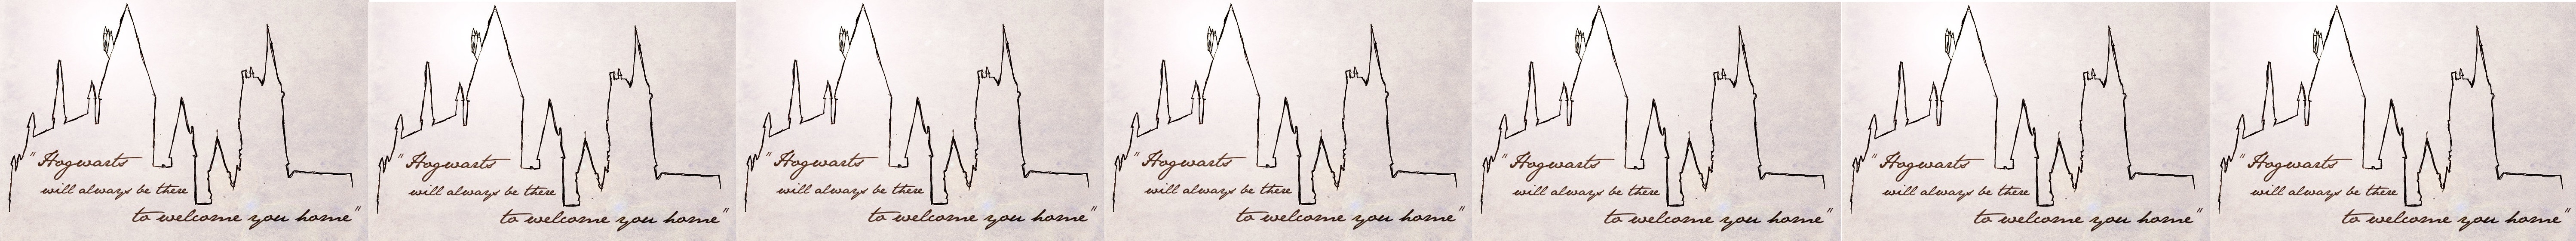 "Hogwarts "Hogwarts "Hogwarts "Hogwarts "Hogwarts "Hogwarts "Hogwarts
will always be there will always be there will always be there will always be there will always be there will always be there will always be there
to welcome you home" to welcome you home" to welcome you home" to welcome you home" to welcome you home" to welcome you home" to welcome you home"